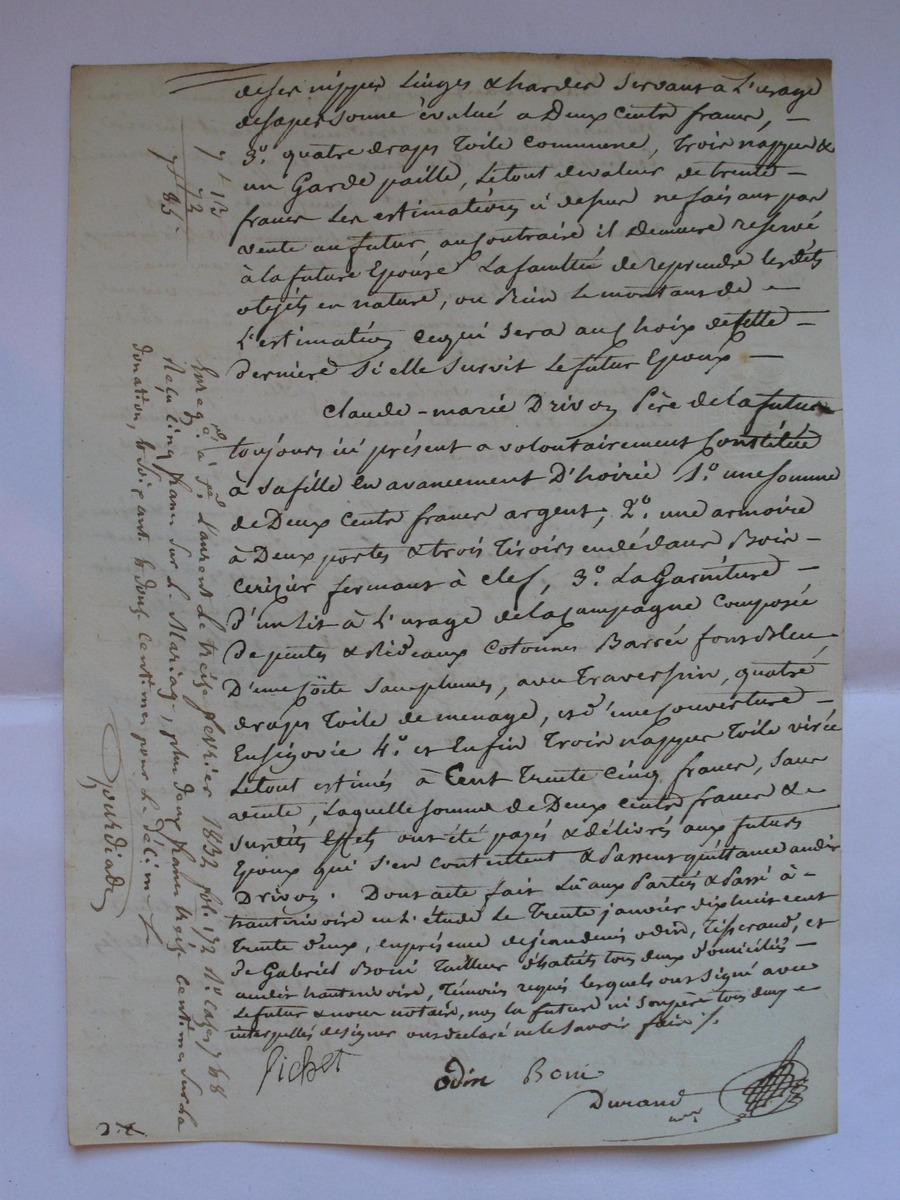 de ses nippes Linges & hardes servant à L'usage
de sa personne évalué a Deux Cents francs, —
3º. quatre draps Toile Commune, Trois nappes &
un Garde paille, Le tout de valeur de trente —
francs Les estimations ci dessus ne faisant pas
vente au futur, au Contraire il Demeure reservé
à la future Epouse La faculté de reprendre lesdits
objets en nature, ou Bien Le montant de —
L'estimation ce qui sera au Choix de cette —
derniere Si elle survit Le futur Epoux —
Claude-marie Drivon Père de la future
toujours ici présent a volontairement Constitué
à sa fille en avancement D'hoirie 1º. une somme
de Deux Cents francs argent, 2º. une armoire
à Deux portes & trois Tiroirs en dédans Bois —
Cerisier fermant à Clef, 3º. La Garniture —
D'un Lit à L'usage de la Campagne Composée
De pentes & Rideaux Cotonnes Barrée fonds Bleu
D'une Coite sans plumes, avec Traversin, quatre
draps Toile de menage, et d'une Couverture —
En Ségovie 4º. et Enfin Trois nappes Toile virée
Le tout estimés à Cent Trente Cinq francs, sans
vente, Laquelle somme de Deux Cents francs &
susdits Effets ont été payés & délivrés aux futurs
Epoux qui s'en contentent & Passent quittance audit
Drivon. Dont acte fait Lû aux Parties & Passé à —
hauterivoire en L'étude Le Trente janvier dix huit cent
Trente Deux, en présence de jean denis odin, Tisserand, et
De Gabriel Boni Tailleur d'habits tous deux Domiciliés —
audit hauterivoire, Témoins requis Lesquels ont signé avec
Le futur & nous notaire, non La future ni son père Tous deux —
interpellés de signer ont declaré ne le savoir faire ./.
Pichet
odin Boni
Durand
Enreg. à St. Laurent Le treize fevrier 1832 fol. 172 Rº. Cases 7 & 8
Reçu Cinq francs sur Le Mariage, plus deux francs treize Centimes sur la
donation, & soixante & douze Centimes pour Le Décime
Gourdiade